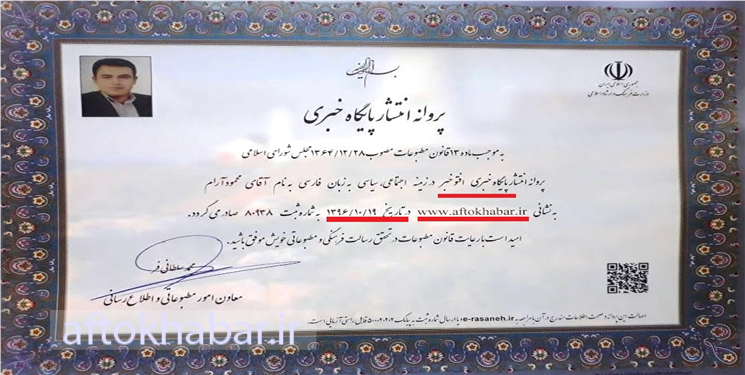 بسم الله الرحمن الرحیم
جمهوری اسلامی ایران
وزارت فرهنگ و ارشاد اسلامی
پروانه انتشار پایگاه خبری
به موجب ماده ۱۳ قانون مطبوعات مصوب ۱۳۶۴/۱۲/۲۸ مجلس شورای اسلامی
پروانه انتشار پایگاه خبری افتو خبر در زمینه اجتماعی، سیاسی به زبان فارسی به نام آقای محمود آرام
به نشانی www.aftokhabar.ir در تاریخ ۱۳۹۶/۱۰/۱۹ به شماره ثبت ۸۰۹۳۸ صادر می گردد.
امید است با رعایت قانون مطبوعات در تحقق رسالت فرهنگی و مطبوعاتی خویش موفق باشید.
محمد سلطانی فر
معاون امور مطبوعاتی و اطلاع رسانی
اصالت این پروانه و صحت اطلاعات مندرج در آن با مراجعه به e-rasaneh.ir و یا ارسال شماره ثبت به پیامک ۵۰۰۰۲۰۲۰۲ قابل راستی آزمایی است.
aftokhabar.ir